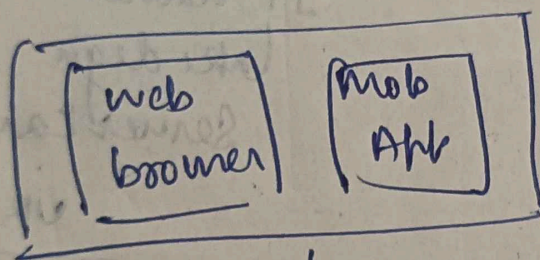 Web
browser
Mob
App